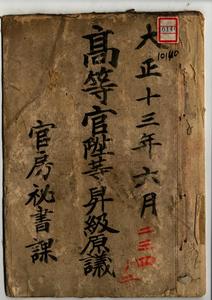 大正十三年六月
10140
二三四
高等官陞等昇級原議
官房祕書課